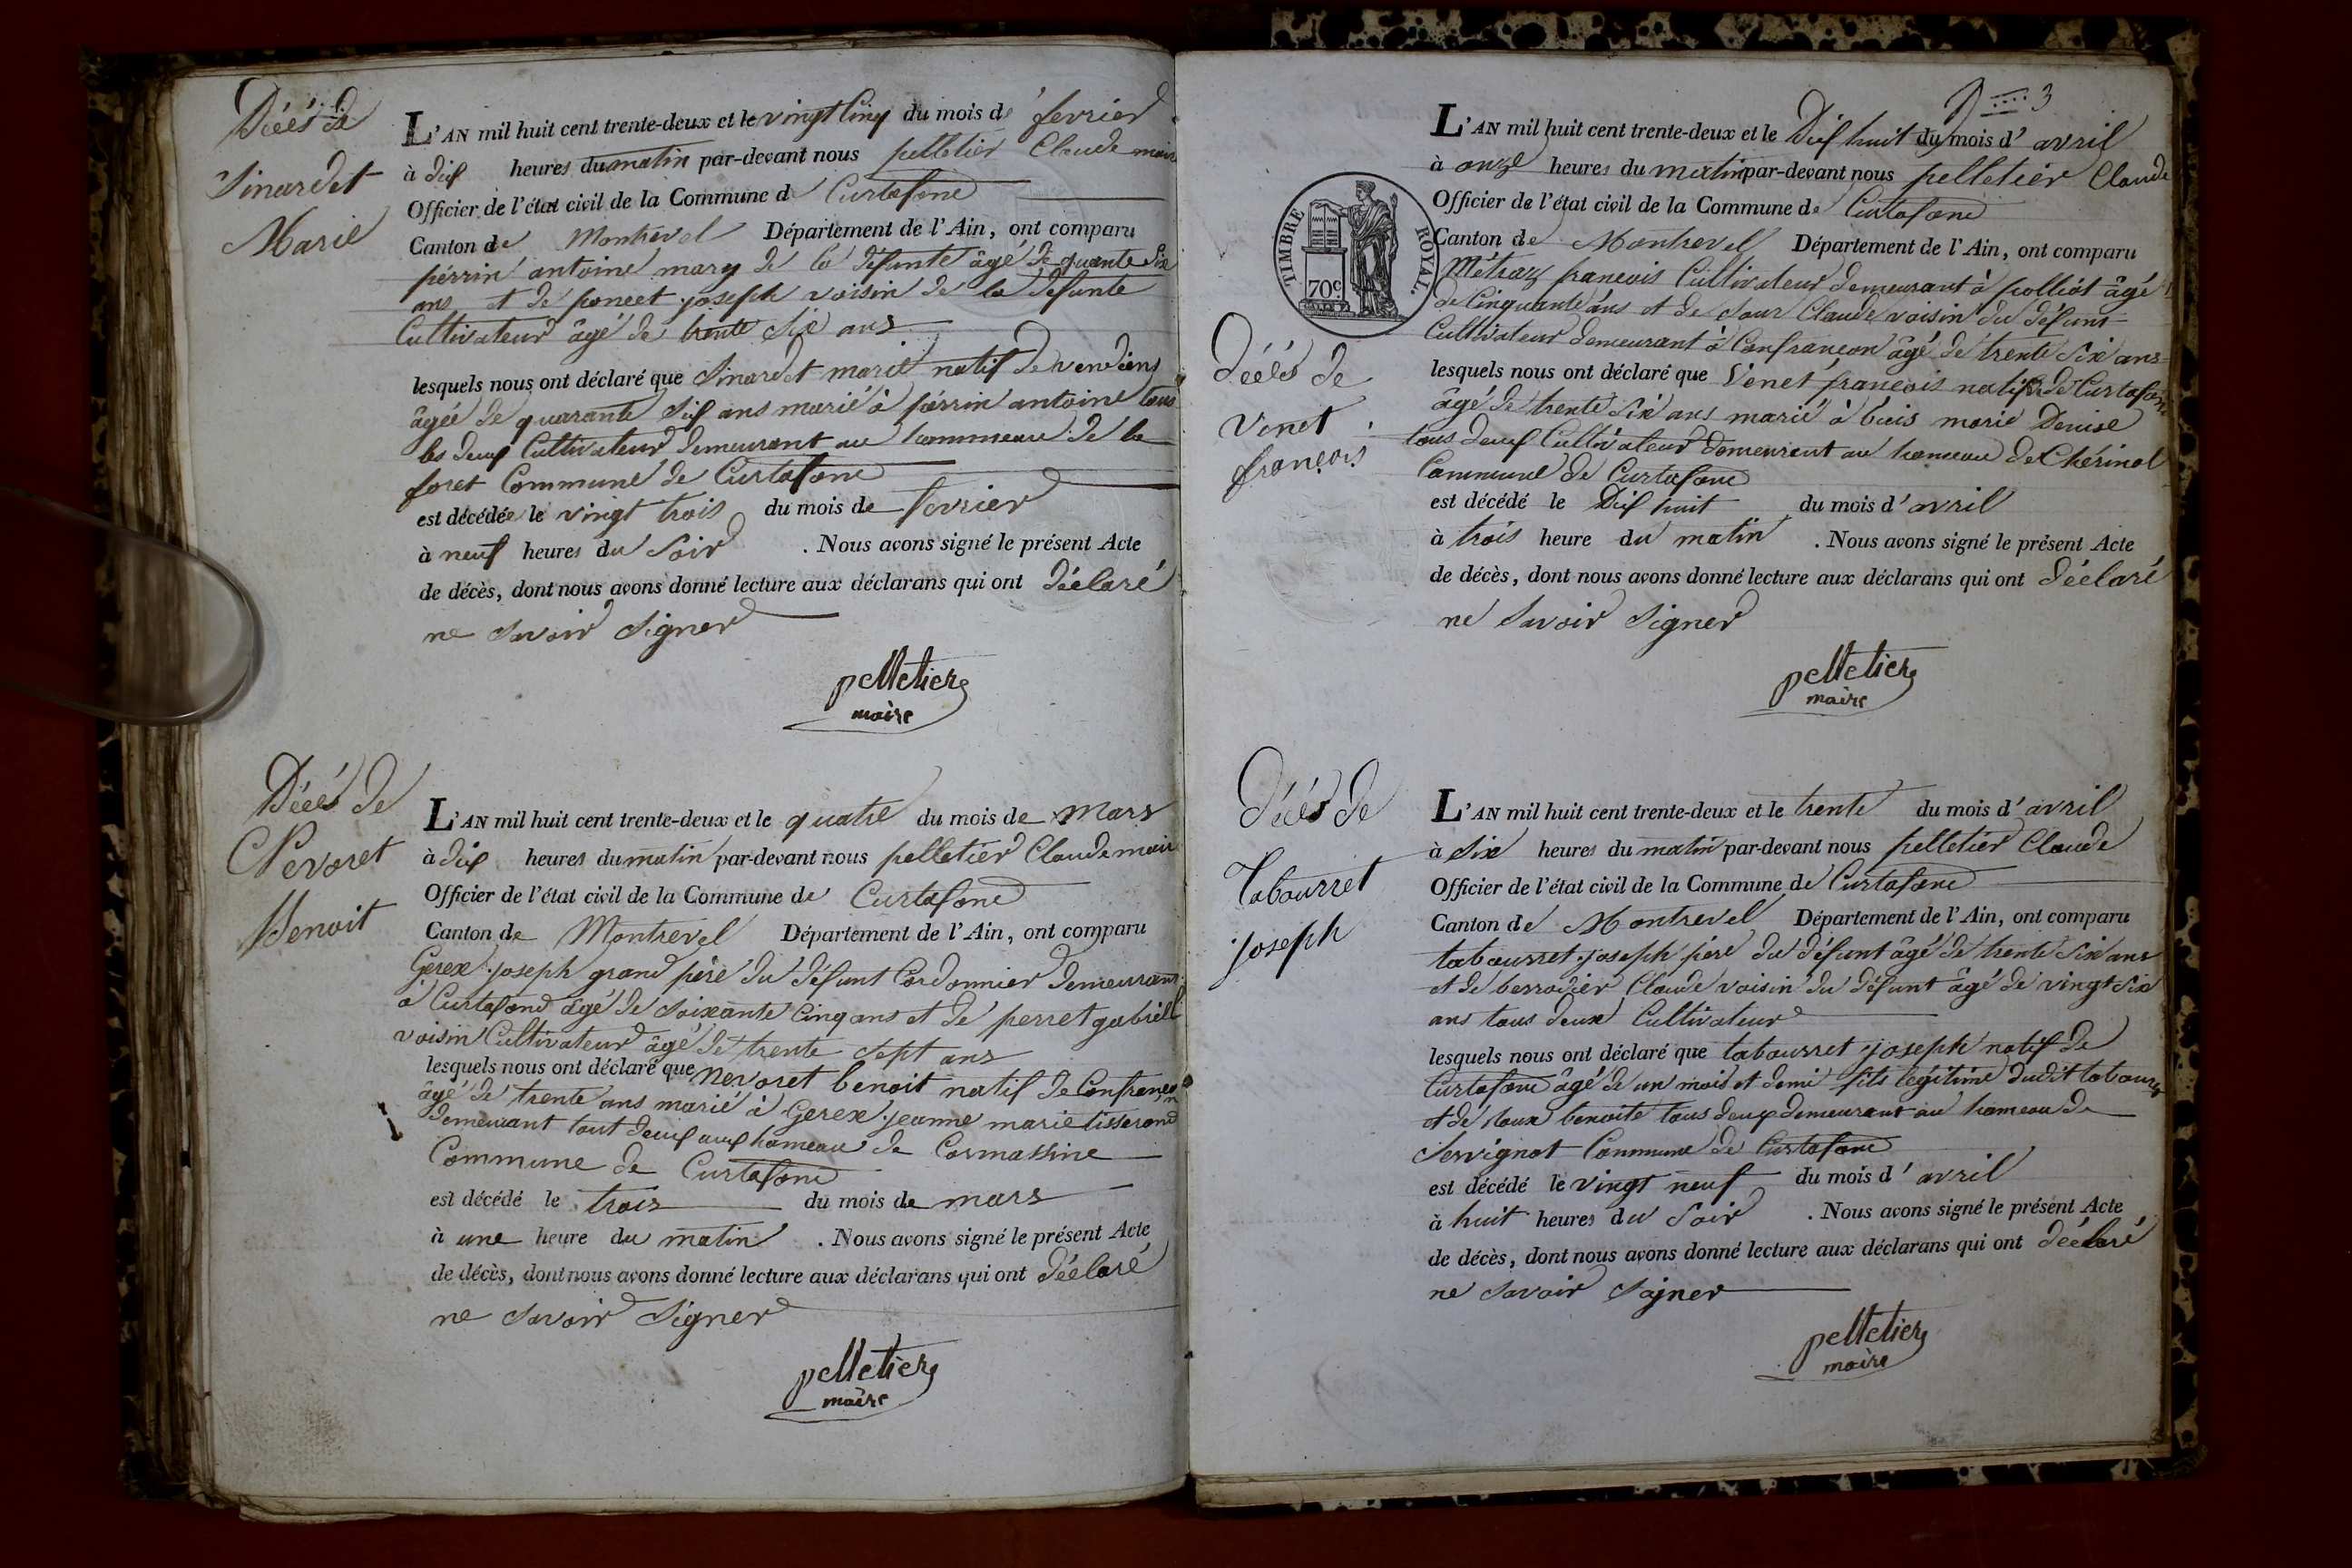 Décés de
Sinardet
Marie
L'AN mil huit cent trente-deux et le vingt Cinq du mois de fevrier
à dix heures du matin par-devant nous pelletier Claude maire
Officier de l'état civil de la Commune de Curtafond
Canton de Montrevel Département de l'Ain, ont comparu
perrin antoine mary de la défunte âgé de quante Six
ans et de poncet joseph voisin de la défunte
Cultivateur âgé de trente Six ans
lesquels nous ont déclaré que Sinardet marie natif de vendeins
âgée de quarante dix ans marié à perrin antoine tous
les deux Cultivateur demeurant au hammeau de la
foret Commune de Curtafond
est décédée le vingt trois du mois de fevrier
à neuf heures du Soir . Nous avons signé le présent Acte
de décès, dont nous avons donné lecture aux déclarans qui ont déclaré
ne Savoir Signer
pelletier
maire
Décés de
Nevoret
Benoit
L'AN mil huit cent trente-deux et le quatre du mois de Mars
à dix heures du matin par-devant nous pelletier Claude maire
Officier de l'état civil de la Commune de Curtafond
Canton de Montrevel Département de l'Ain, ont comparu
Gerex joseph grand père du défunt Cordonnier demeurant
à Curtafond âgé de Soixante Cinq ans et de perret gabriel
voisin Cultivateur âgé de trente Sept ans
lesquels nous ont déclaré que Nevoret benoit natif de Confrançon
âgé de trente ans marié à Gerex jeanne marie tisserand
demeurant tout deux aux hameau de Cormassine
Commune de Curtafond
est décédé le trois du mois de mars
à une heure du matin . Nous avons signé le présent Acte
de décès, dont nous avons donné lecture aux déclarans qui ont déclaré
ne Savoir Signer
pelletier
maire
3
TIMBRE ROYAL.
70c
Décés de
Venet
françois
L'AN mil huit cent trente-deux et le Dix huit du mois d'avril
à onze heures du matin par-devant nous pelletier Claude
Officier de l'état civil de la Commune de Curtafond
Canton de Montrevel Département de l'Ain, ont comparu
Métraz francois Cultivateur demeurant à polliat âgé
de Cinquante ans et de Sour Claude voisin du défunt
Cultivateur demeurant à Confrançon âgé de trente Six ans
lesquels nous ont déclaré que Venet françois natif de Curtafond
âgé de trente Six ans marié à buis marie Denise
tous deux Cultivateur demeurant au hameau de Chérinal
Commune de Curtafond
est décédé le Dix huit du mois d'avril
à trois heure du matin . Nous avons signé le présent Acte
de décès, dont nous avons donné lecture aux déclarans qui ont déclaré
ne Savoir Signer
pelletier
maire
Décés de
Tabourret
joseph
L'AN mil huit cent trente-deux et le trente du mois d'avril
à Six heures du matin par-devant nous pelletier Claude
Officier de l'état civil de la Commune de Curtafond
Canton de Montrevel Département de l'Ain, ont comparu
tabourret joseph père du défunt âgé de trente Six ans
et de berrodier Claude voisin du défunt âgé de vingt Six
ans tous deux Cultivateur
lesquels nous ont déclaré que tabourret joseph natif de
Curtafond âgé de un mois et demi fils légitime dudit tabourret
et de roux benoite tous deux demeurant au hameau de
Servignat Commune de Curtafond
est décédé le vingt neuf du mois d'avril
à huit heures du Soir . Nous avons signé le présent Acte
de décès, dont nous avons donné lecture aux déclarans qui ont déclaré
ne Savoir Sajner
pelletier
maire